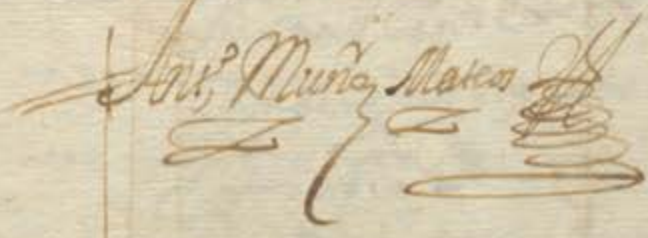 Antº Muñoz Mateos